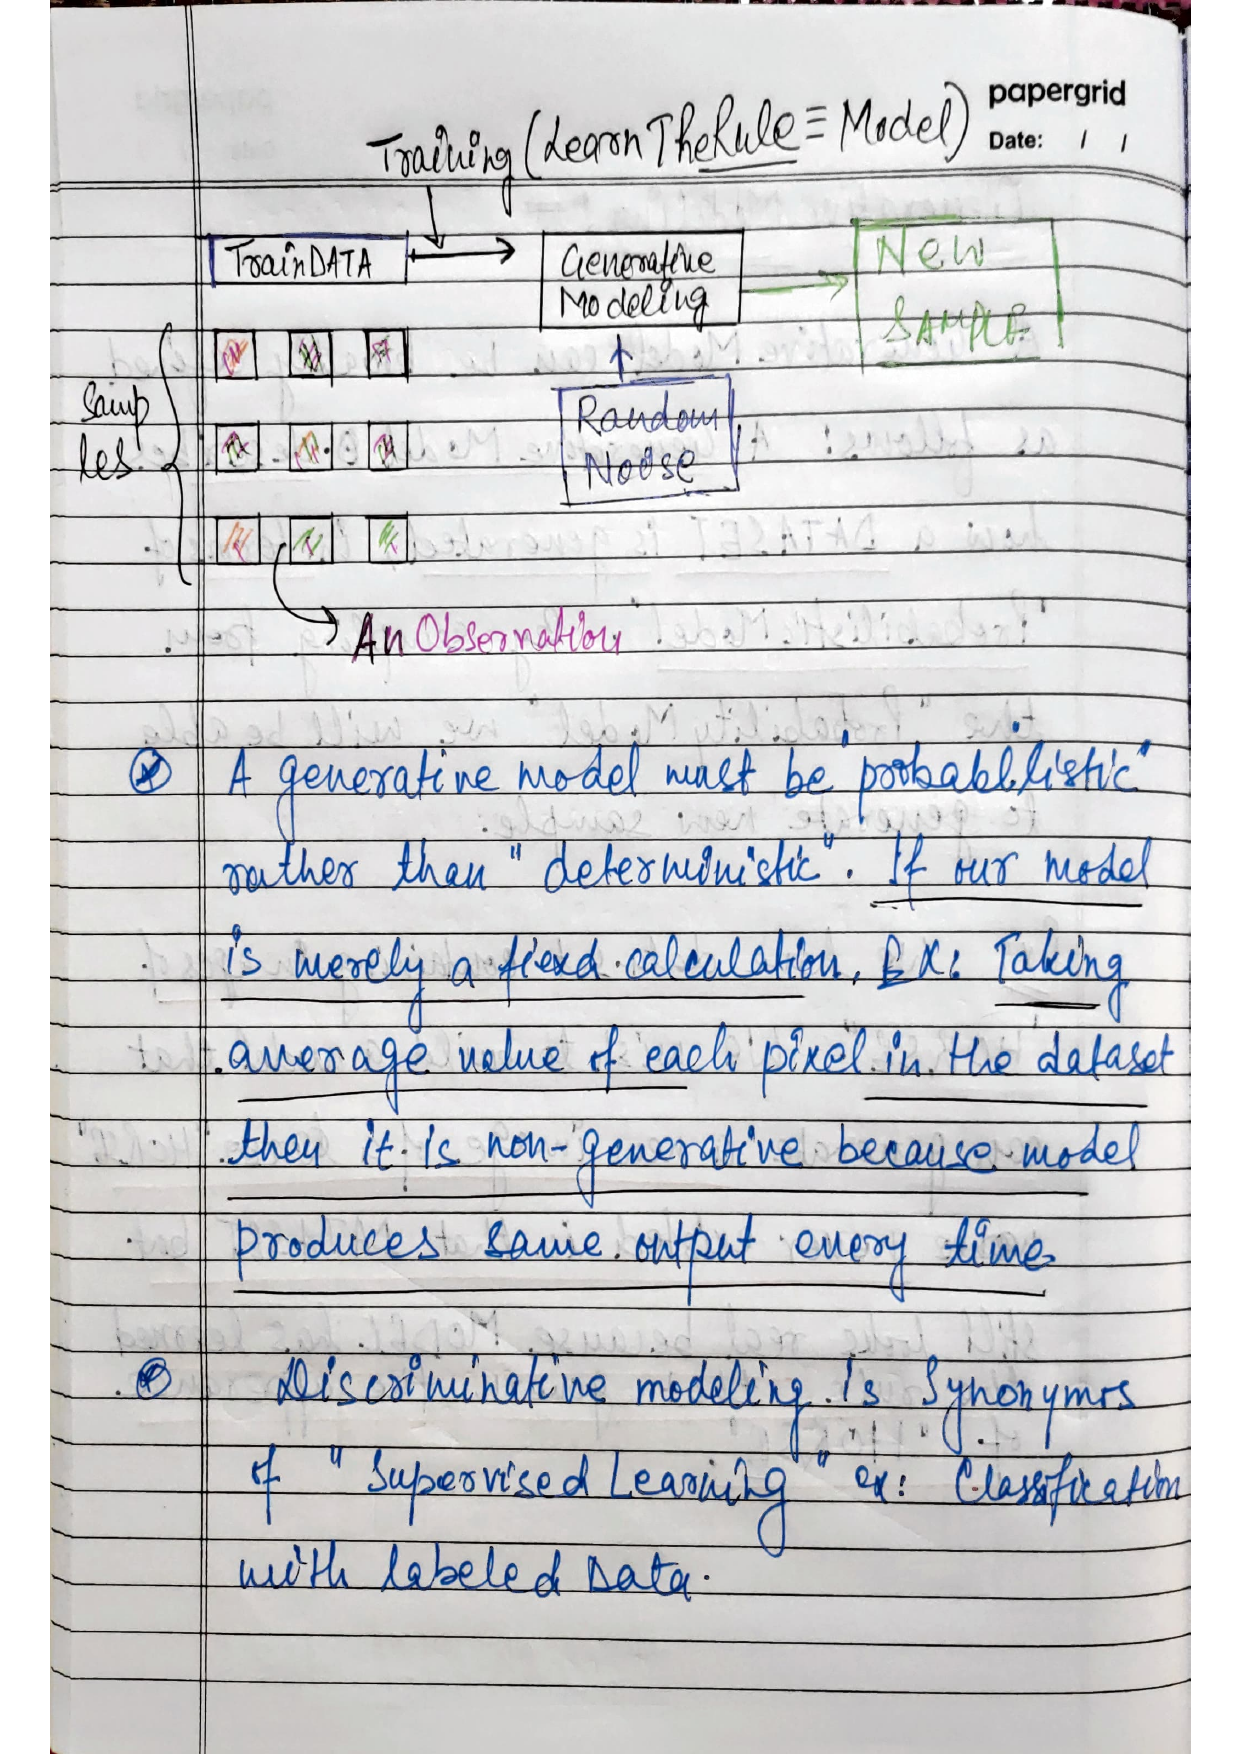 papergrid
Training (Learn The Rule ≡ Model)
Date: / /
Train DATA
Generative
Modeling
New
SAMPLE
Samp
les.
Random
Noise
An Observation
A generative model must be "probabblistic"
rather than "deterministic". If our model
is merely a fiexd calculation, EX: Taking
average value of each pixel in the dataset
then it is non-generative because model
produces same output every time.
Discriminative modeling is Synonymrs
of "Supervised Learning" ex: Classification
with labeled Data.